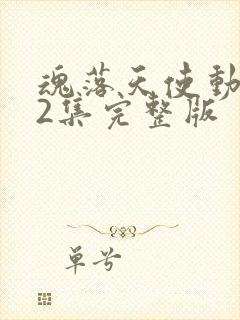 魂落天使動
2集完整版
单号